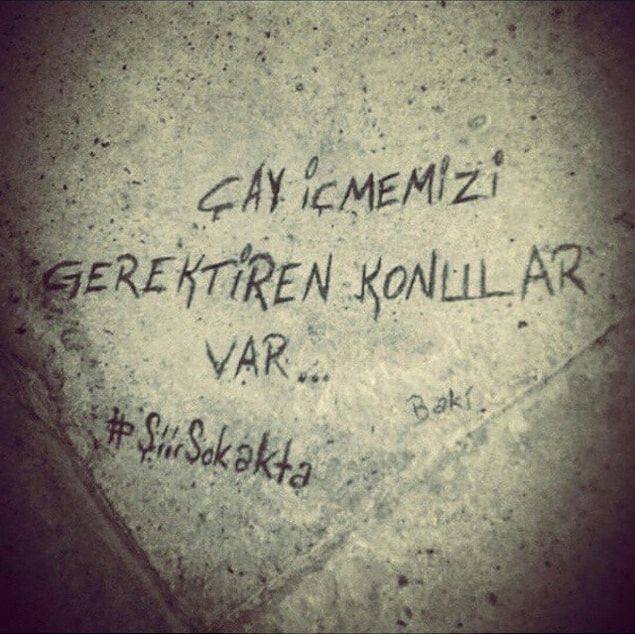 ÇAY İÇMEMİZİ
GEREKTİREN KONULAR
VAR...
Baki.
#ŞiirSokakta